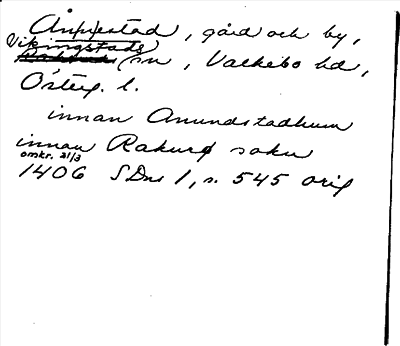 Ånnestad, gård och by,
Vikingstads
sn, Valkebo hd,
Österg. l.
innan Anundstadhum
innan Rakurø sokn
omkr. 21/3
1406 SDns 1, s. 545 orig